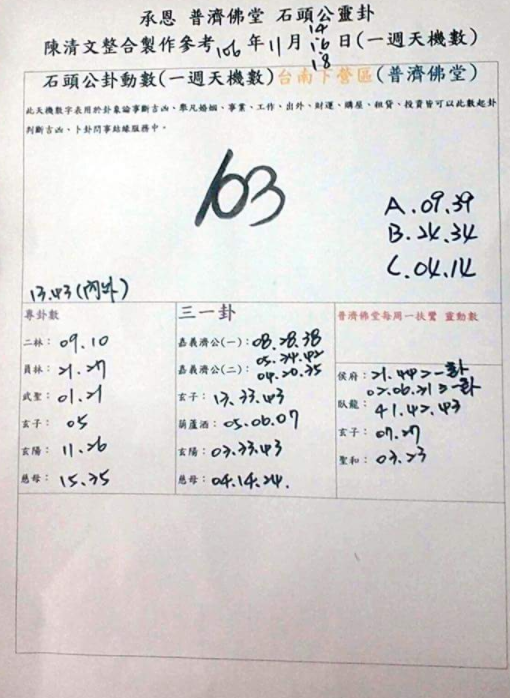 承恩 普濟佛堂 石頭公靈卦
陳清文整合製作參考106年11月14 16 18日(一週天機數)
石頭公卦動數(一週天機數)台南下營區(普濟佛堂)
此天機數字表用於卦象論事斷吉凶、舉凡婚姻、事業、工作、出外、財運、購屋、租貸、投資皆可以此數起卦
列斷吉凶、卜卦問事結緣服務中。
103
A.09.39
B.24.34
C.04.14
13.43(內外)
專卦數
二林：09.10
員林：21.27
武聖：01.21
玄子：05
玄陽：11.26
慈母：15.35
三一卦
嘉義濟公(一)：08.28.38
05.34.42
嘉義濟公(二)：04.20.35
玄子：13.33.43
葫蘆酒：05.06.07
玄陽：03.33.43
慈母：04.14.24.
普濟佛堂每周一扶鸞 靈動數
侯府：21.44>一卦
02.06.31>一卦
臥龍：41.42.43
玄子：07.27
聖和：03.23